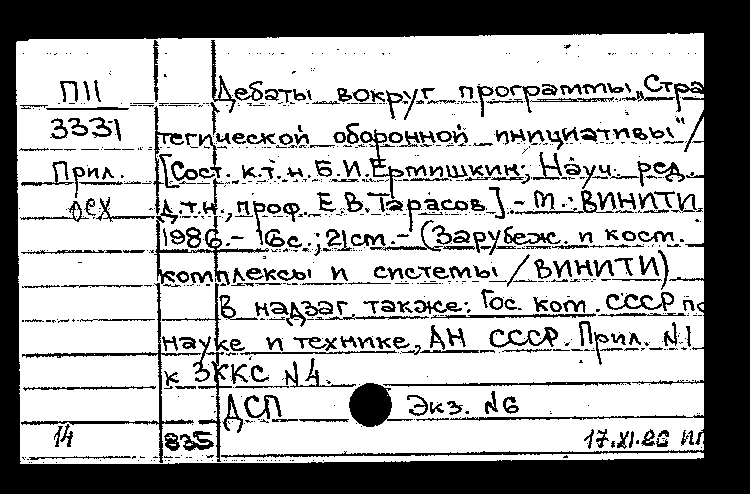 П11
3331
Прил.
дех
Дебаты вокруг программы „Стра
тегической оборонной инициативы"/
[Сост. к.т.н. Б.И.Ермишкин; Науч. ред.
д.т.н., проф. Е.В.Тарасов] - М.: ВИНИТИ
1986.- 16с.; 21см.- (Зарубеж. и косм.
комплексы и системы / ВИНИТИ)
В надзаг. также: Гос. ком. СССР по
науке и технике, АН СССР. Прил. N1
к ЗККС N4.
ДСП Экз. N6
14 835 17.XI.86 ИП